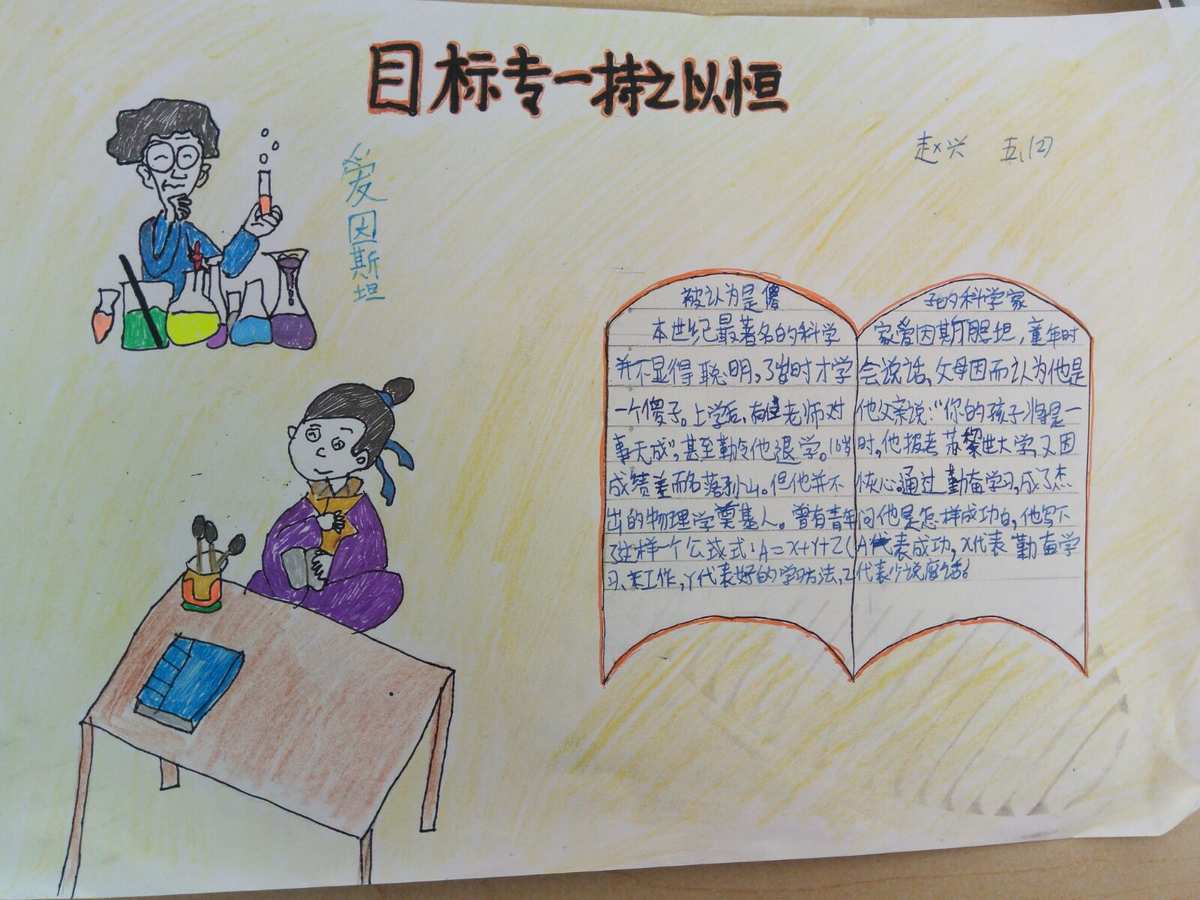 目标专一持之以恒
赵兴 五,(2)
爱因斯坦
被认为是傻子的科学家
本世纪最著名的科学家爱因斯坦,童年时
并不显得聪明,3岁时才学会说话,父母因而认为他是
一个傻子。上学后,有位老师对他父亲说:“你的孩子将是一
事无成”,甚至勒令他退学。16岁时,他报考苏黎世大学,又因
成绩差而名落孙山。但他并不灰心。通过勤奋学习,成了杰
出的物理学奠基人。曾有青年问他是怎样成功白,他写下
了这样一个公式:A=X+Y+Z(A代表成功,X代表勤奋学
习、工作,Y代表好的学习方法,Z代表少说废话。